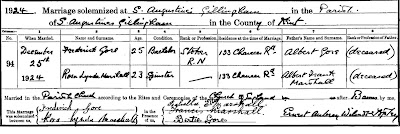 1924. Marriage solemnized at S. Augustine's Gillingham in the Parish
of S. Augustine's Gillingham in the County of Kent
No. When Married. Name and Surname. Age. Condition. Rank or Profession. Residence at the time of Marriage. Father's Name and Surname. Rank or Profession of Father.
94 December 25th 1924 Frederick Gore 25 Bachelor Stoker R.N 133 Chaucer Rd. Albert Gore (deceased)
Rosa Lynda Marshall 23 Spinster 133 Chaucer Rd. Albert Frank Marshall (deceased)
Married in the Parish Church according to the Rites and Ceremonies of the Church of England after Banns by me,
This Marriage was solemnized between us, Frederick Gore
Rosa Lynda Marshall
in the Presence of us, Marshall
Marshall
Gore
Ernest Aubrey